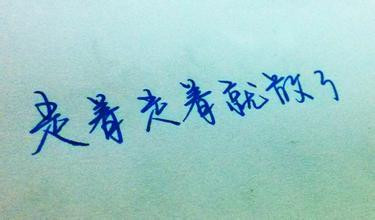 走着走着就散了